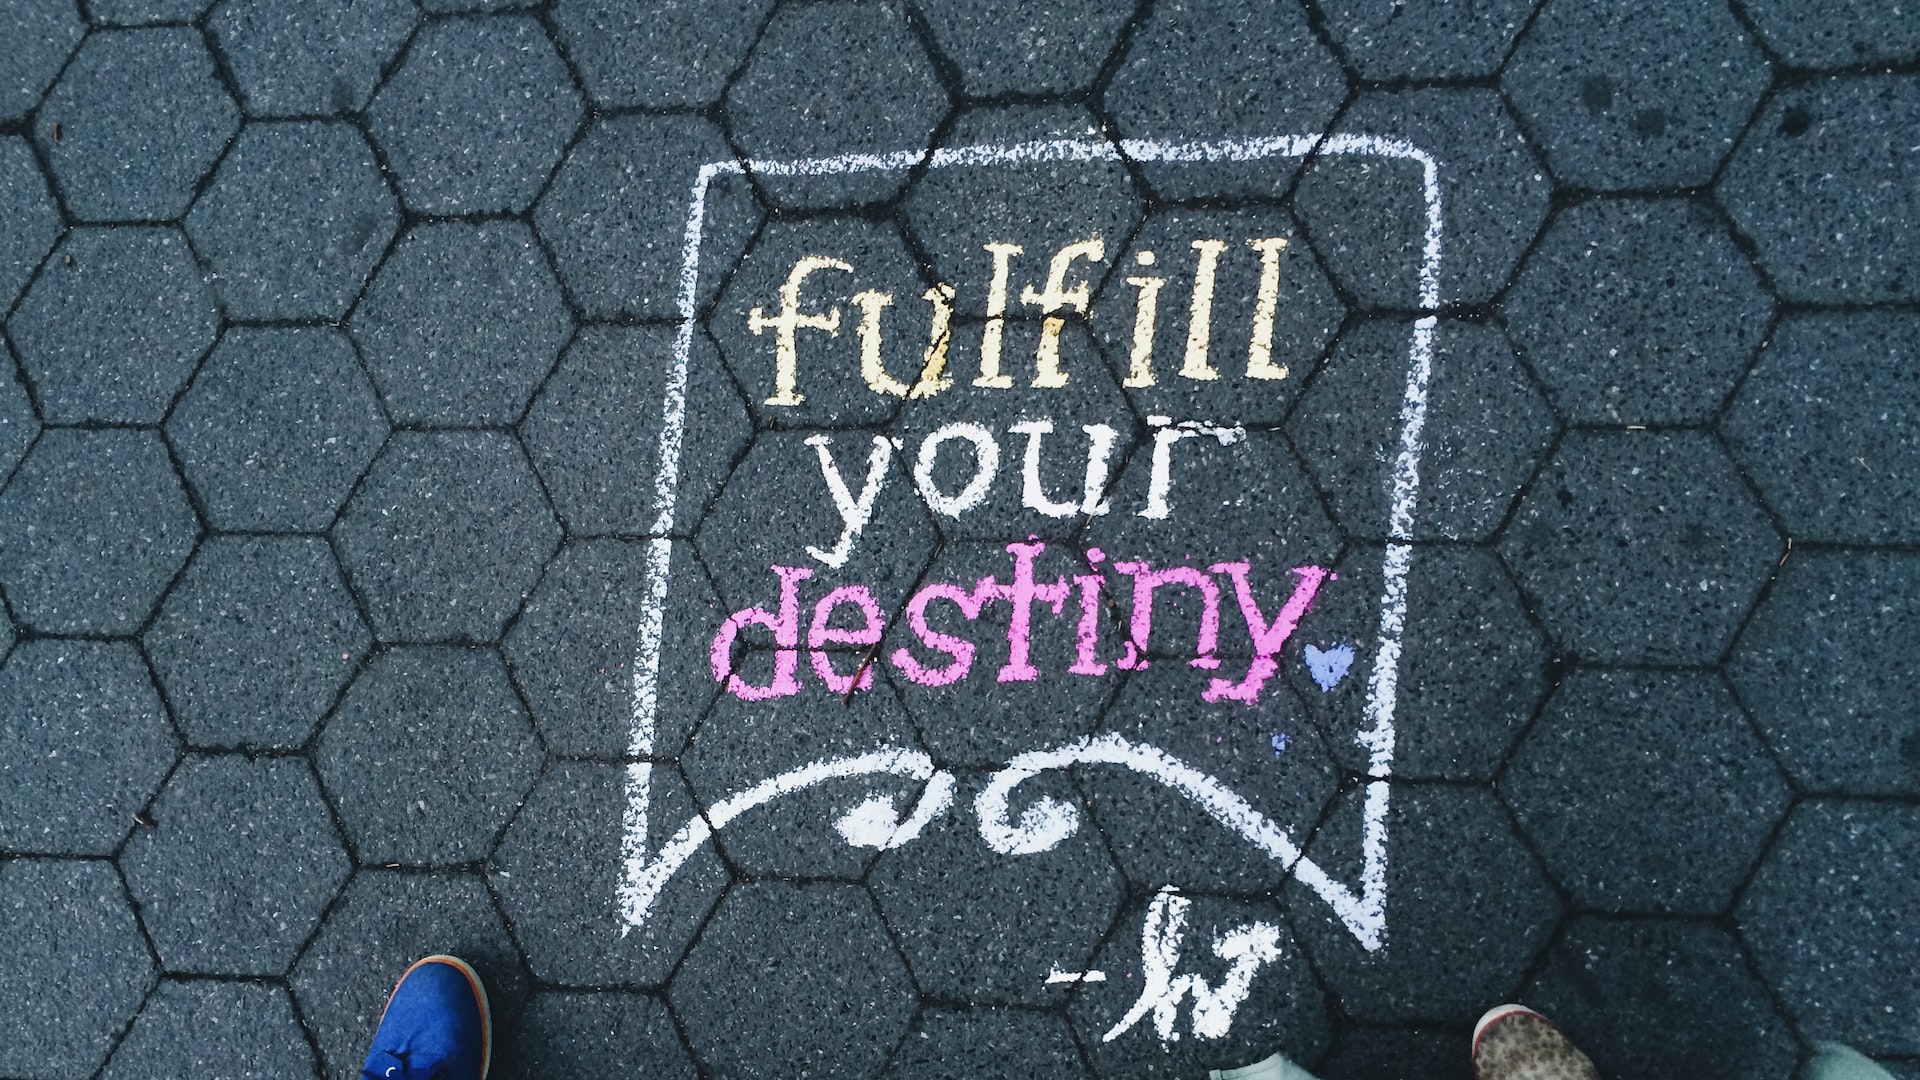 fulfill
your
destiny.